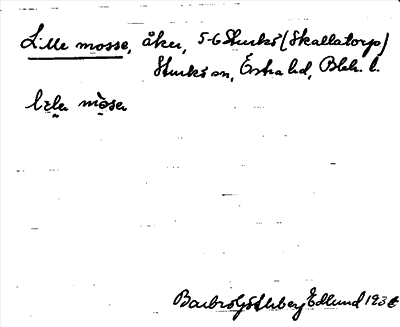 Lille mosse, åker, 5-6 Sturkö (Skallatorp)
Sturkö sn, Östra hd, Blek. l.
lılə mòsən
Barbro Götherberg Edlund 193